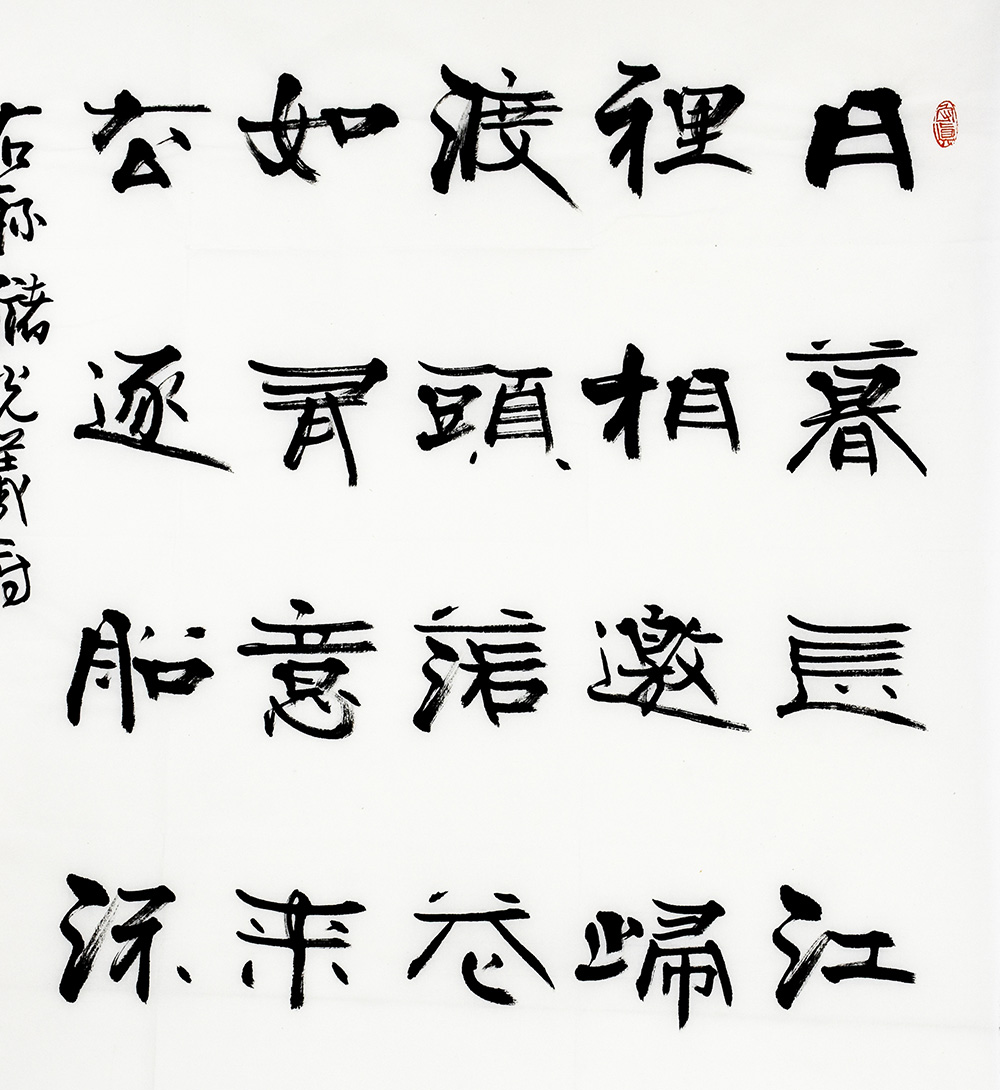 日暮長江
裡相邀歸
渡頭落花
如有意来
去逐船流
右録儲光羲詩